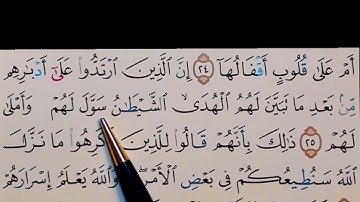 أَمْ عَلَىٰ قُلُوبٍ أَقْفَالُهَآ ٢٤ إِنَّ ٱلَّذِينَ ٱرْتَدُّوا۟ عَلَىٰٓ أَدْبَٰرِهِم
مِّنۢ بَعْدِ مَا تَبَيَّنَ لَهُمُ ٱلْهُدَى ۙ ٱلشَّيْطَٰنُ سَوَّلَ لَهُمْ وَأَمْلَىٰ
٢٥ ذَٰلِكَ بِأَنَّهُمْ قَالُوا۟ لِلَّذِينَ كَرِهُوا۟ مَا نَزَّلَ
ٱللَّهُ سَنُطِيعُكُمْ فِى بَعْضِ ٱلْأَمْرِ ۖ وَٱللَّهُ يَعْلَمُ إِسْرَارَهُمْ